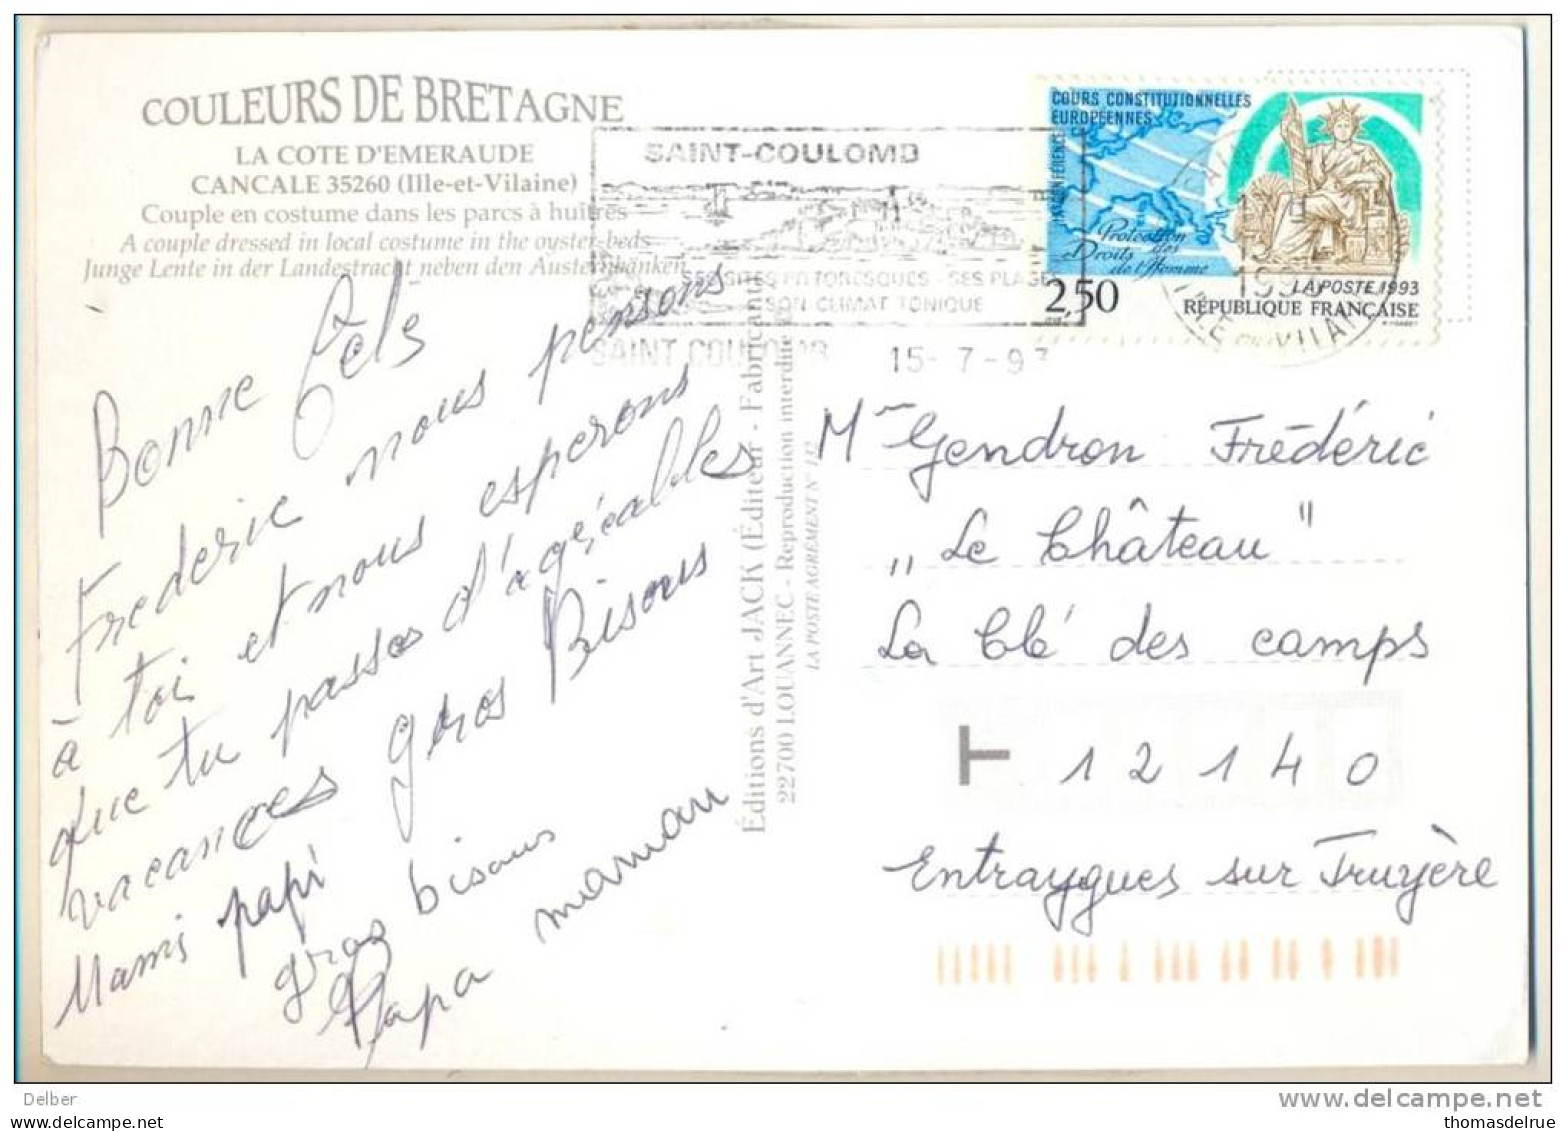 COULEURS DE BRETAGNE
LA COTE D'EMERAUDE
CANCALE 35260 (Ille-et-Vilaine)
Couple en costume dans les parcs à huîtres
A couple dressed in local costume in the oyster-beds
Junge Lente in der Landestracht neben den Austernbänken
SAINT-COULOMB
SES SITES PITTORESQUES - SES PLAGES
SON CLIMAT TONIQUE
SAINT COULOMB 15-7-93
COURS CONSTITUTIONNELLES
EUROPÉENNES
Protection
des
Droits
de l'Homme
2,50
LA POSTE 1993
RÉPUBLIQUE FRANÇAISE
1993
ILLE ET VILAINE
Bonne fête
Frederic nous pensons
à toi et nous esperons
que tu passes d'agréables
vacances gros Bisous
Mamie papi
gros bisous
Papa maman
Éditions d'Art JACK (Éditeur - Fabricant)
22700 LOUANNEC - Reproduction interdite
LA POSTE AGRÉMENT N° 142
Mr Gendron Frédéric
„Le Château"
La Clé des camps
T 12140
Entraygues sur Truyère
Delber
delcampe.net
myoldcards.com
thomasdelrue